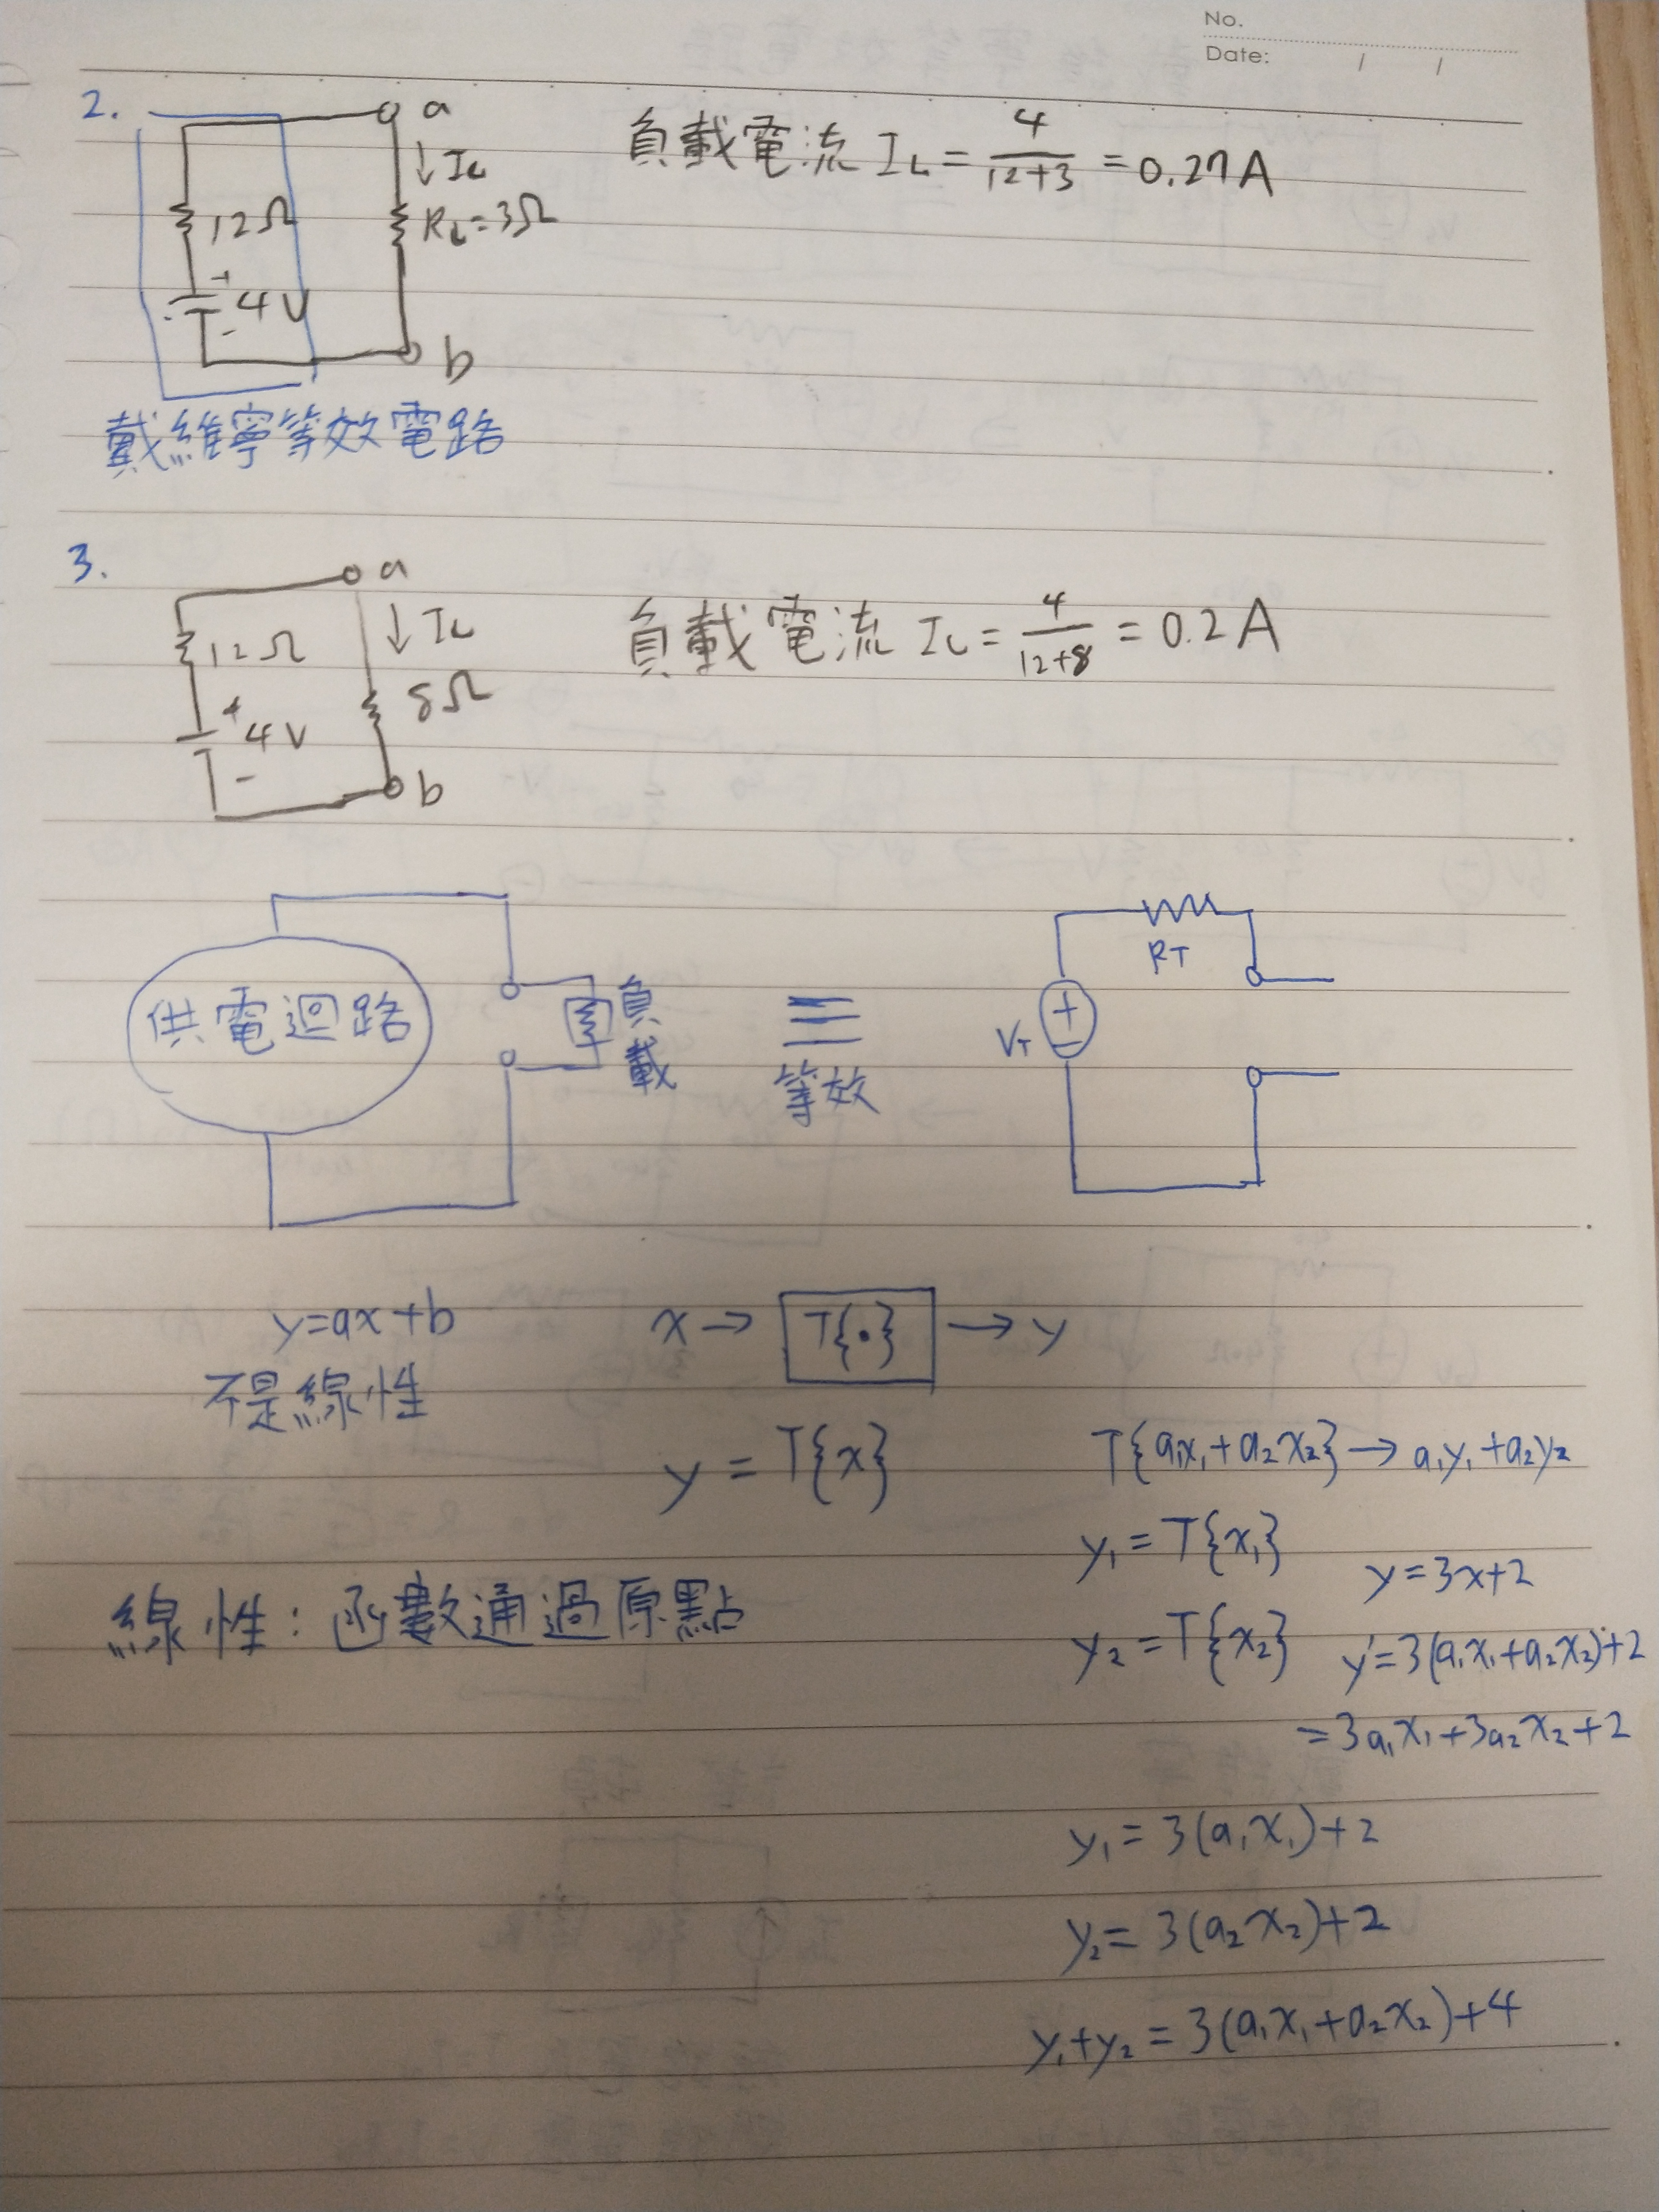 No.
Date: / /
2.
a
↓ IL
12Ω
RL=3Ω
+
4V
-
b
負載電流 IL = 4/(12+3) = 0.27A
戴維寧等效電路
3.
a
↓ IL
12Ω
8Ω
+
4V
-
b
負載電流 IL = 4/(12+8) = 0.2A
供電迴路
負載
≡
等效
RT
VT
+
-
y=ax+b
不是線性
x → T{•} → y
y = T{x}
線性:函數通過原點
T{a₁x₁+a₂x₂} → a₁y₁+a₂y₂
y₁ = T{x₁}
y=3x+2
y₂ = T{x₂}
y'=3(a₁x₁+a₂x₂)+2
=3a₁x₁+3a₂x₂+2
y₁ = 3(a₁x₁)+2
y₂ = 3(a₂x₂)+2
y₁+y₂ = 3(a₁x₁+a₂x₂)+4